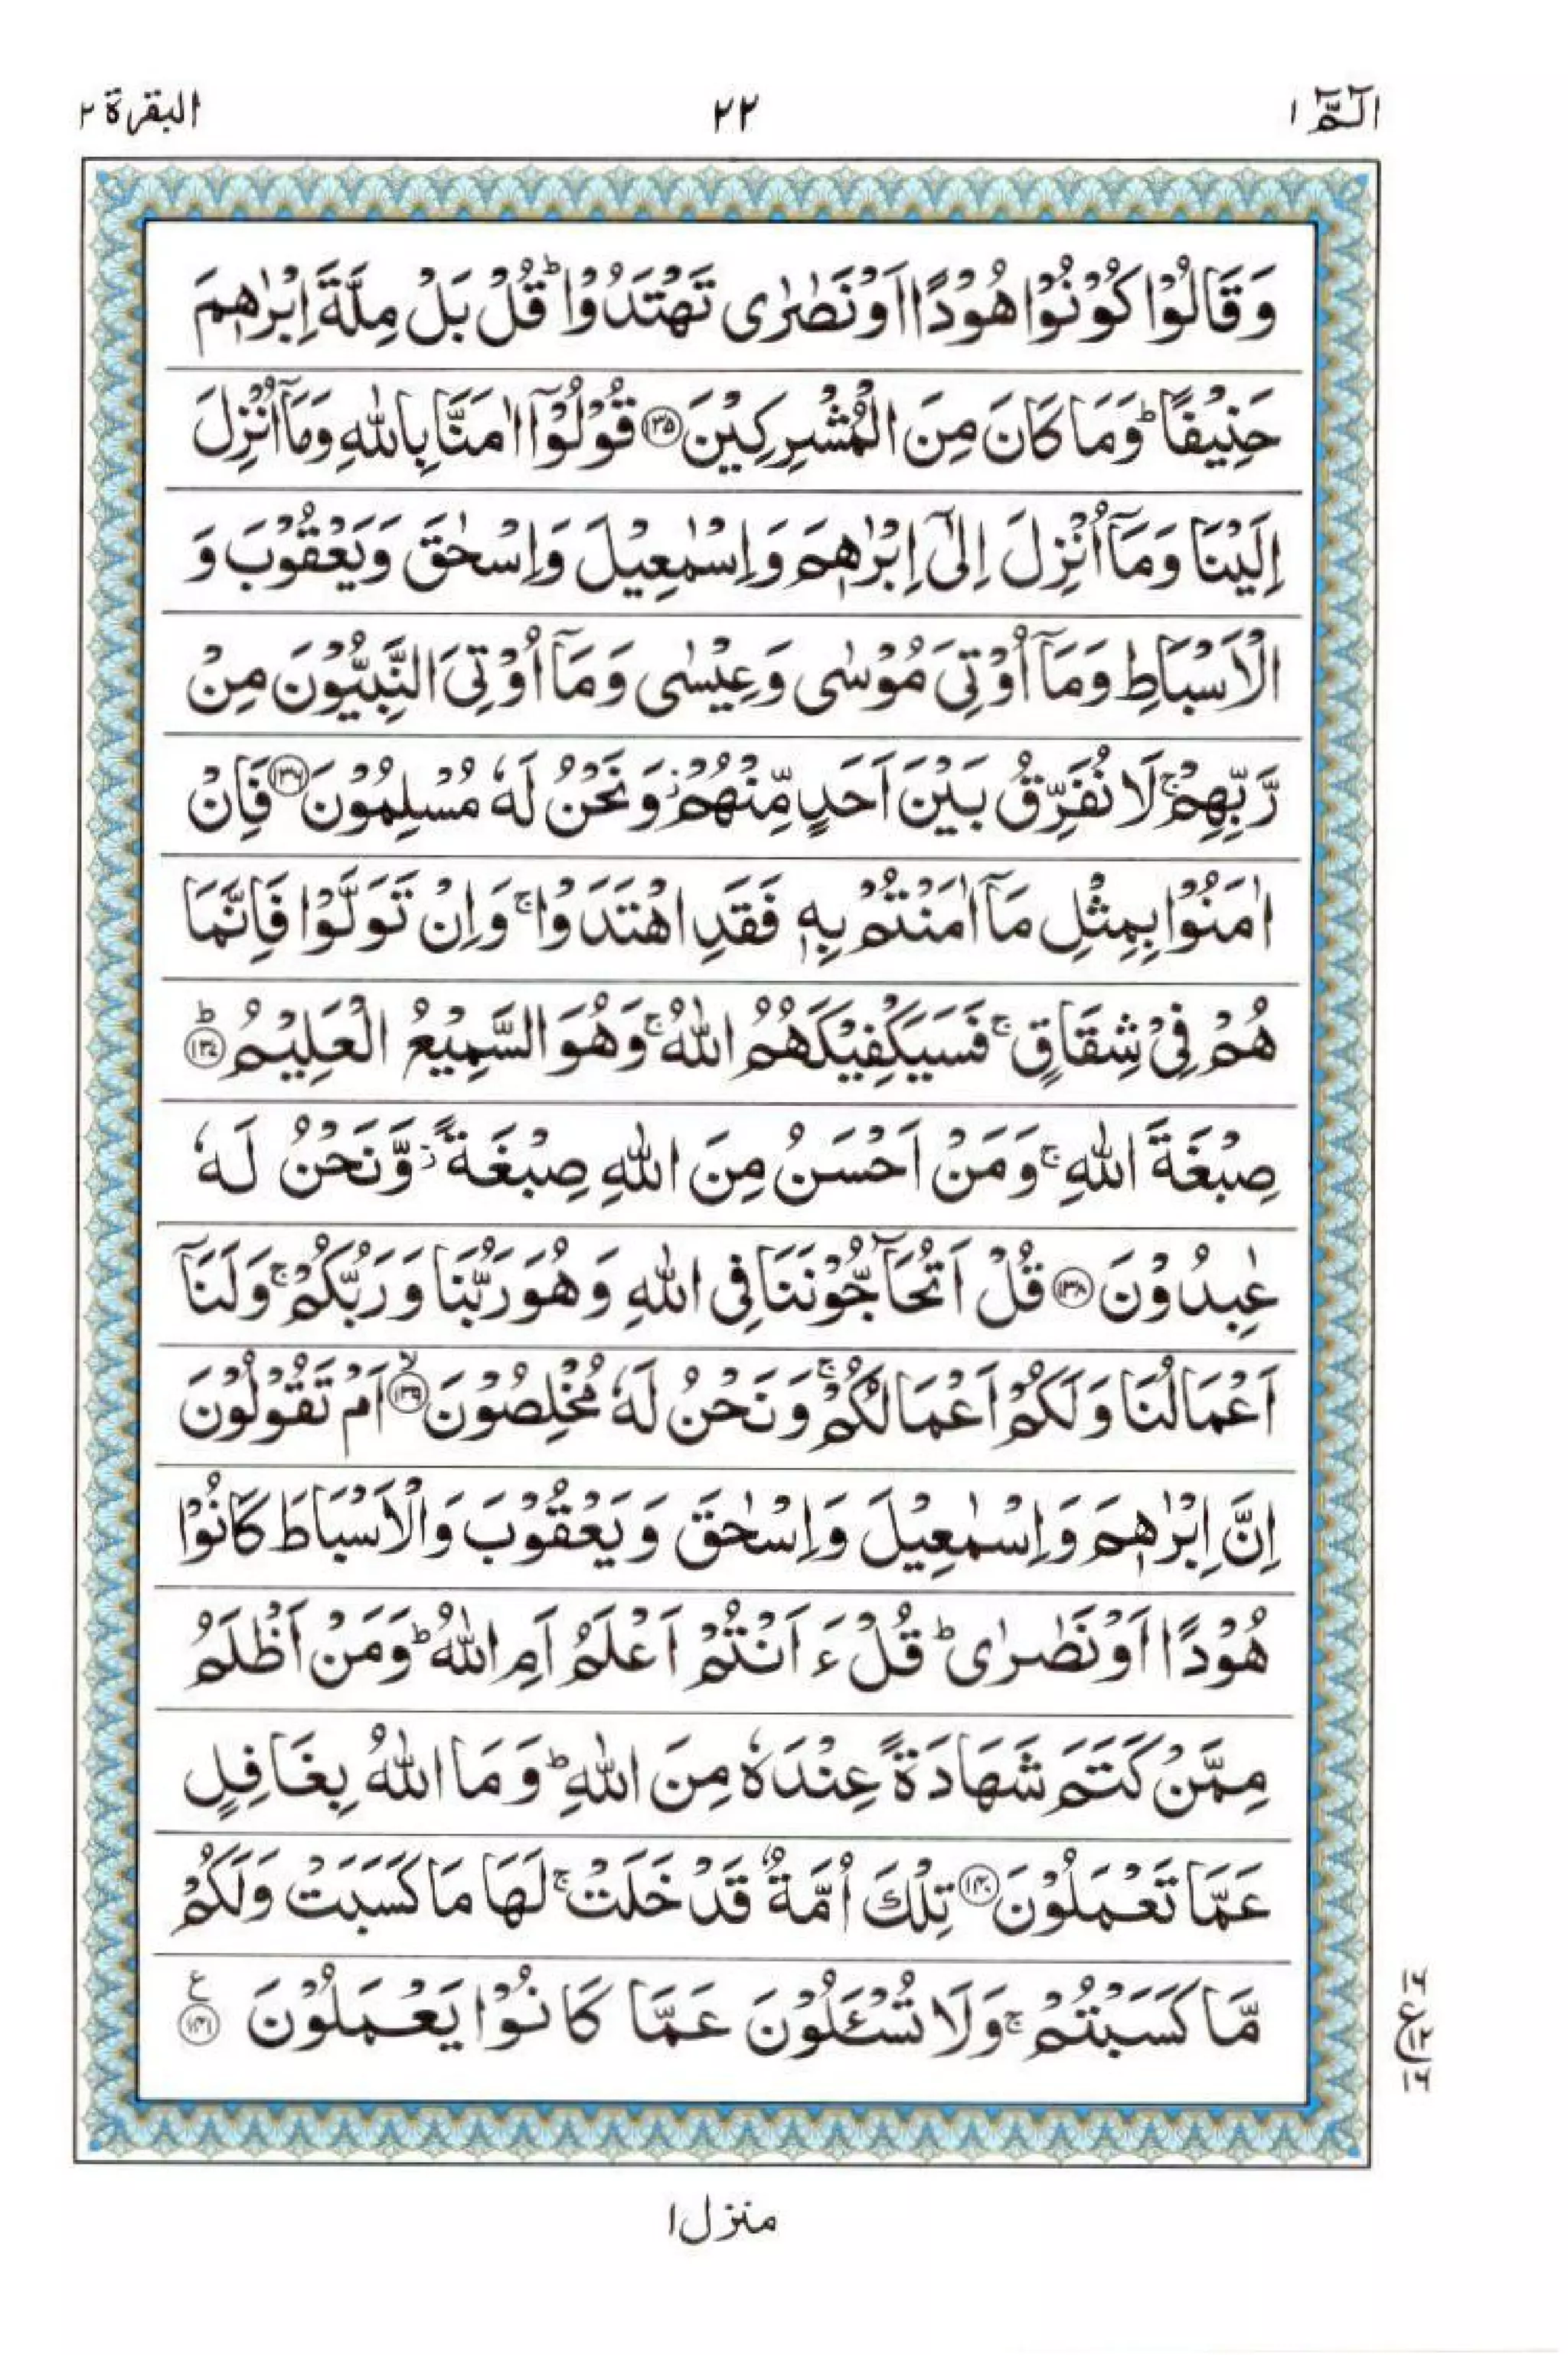 الٓمّٓ ١ ٢٢ البقرة ٢
وَقَالُوْا كُوْنُوْا هُوْدًا اَوْ نَصٰرٰى تَهْتَدُوْا ؕ قُلْ بَلْ مِلَّةَ اِبْرٰهٖمَ
حَنِيْفًا ؕ وَمَا كَانَ مِنَ الْمُشْرِكِيْنَ ﴿۱۳۵﴾ قُوْلُوْٓا اٰمَنَّا بِاللّٰهِ وَمَآ اُنْزِلَ
اِلَيْنَا وَمَآ اُنْزِلَ اِلٰٓى اِبْرٰهٖمَ وَاِسْمٰعِيْلَ وَاِسْحٰقَ وَيَعْقُوْبَ وَ
الْاَسْبَاطِ وَمَآ اُوْتِيَ مُوْسٰى وَعِيْسٰى وَمَآ اُوْتِيَ النَّبِيُّوْنَ مِنْ
رَّبِّهِمْ ۚ لَا نُفَرِّقُ بَيْنَ اَحَدٍ مِّنْهُمْ ؗ وَنَحْنُ لَهٗ مُسْلِمُوْنَ ﴿۱۳۶﴾ فَاِنْ
اٰمَنُوْا بِمِثْلِ مَآ اٰمَنْتُمْ بِهٖ فَقَدِ اهْتَدَوْا ۚ وَاِنْ تَوَلَّوْا فَاِنَّمَا
هُمْ فِيْ شِقَاقٍ ۚ فَسَيَكْفِيْكَهُمُ اللّٰهُ ۚ وَهُوَ السَّمِيْعُ الْعَلِيْمُ ؕ﴿۱۳۷﴾
صِبْغَةَ اللّٰهِ ۚ وَمَنْ اَحْسَنُ مِنَ اللّٰهِ صِبْغَةً ؗ وَّنَحْنُ لَهٗ
عٰبِدُوْنَ ﴿۱۳۸﴾ قُلْ اَتُحَآجُّوْنَنَا فِى اللّٰهِ وَهُوَ رَبُّنَا وَرَبُّكُمْ ۚ وَلَنَآ
اَعْمَالُنَا وَلَكُمْ اَعْمَالُكُمْ ۚ وَنَحْنُ لَهٗ مُخْلِصُوْنَ ۙ﴿۱۳۹﴾ اَمْ تَقُوْلُوْنَ
اِنَّ اِبْرٰهٖمَ وَاِسْمٰعِيْلَ وَاِسْحٰقَ وَيَعْقُوْبَ وَالْاَسْبَاطَ كَانُوْا
هُوْدًا اَوْ نَصٰرٰى ؕ قُلْ ءَاَنْتُمْ اَعْلَمُ اَمِ اللّٰهُ ؕ وَمَنْ اَظْلَمُ
مِمَّنْ كَتَمَ شَهَادَةً عِنْدَهٗ مِنَ اللّٰهِ ؕ وَمَا اللّٰهُ بِغَافِلٍ
عَمَّا تَعْمَلُوْنَ ﴿۱۴۰﴾ تِلْكَ اُمَّةٌ قَدْ خَلَتْ ۚ لَهَا مَا كَسَبَتْ وَلَكُمْ
مَّا كَسَبْتُمْ ۚ وَلَا تُسْـَٔلُوْنَ عَمَّا كَانُوْا يَعْمَلُوْنَ ﴿۱۴۱﴾ ع
۱۶ ع ۱۲ ۱۶
منزل ١